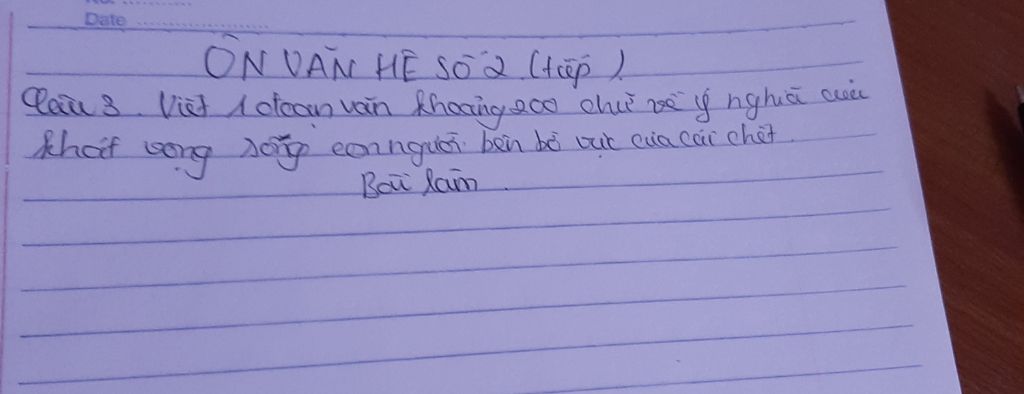 Date
ÔN VĂN HÈ SỐ 2 (tiếp)
Câu 3. Viết 1 đoạn văn khoảng 200 chữ về ý nghĩa của
khát vọng sống con người bên bờ vực của cái chết.
Bài làm.